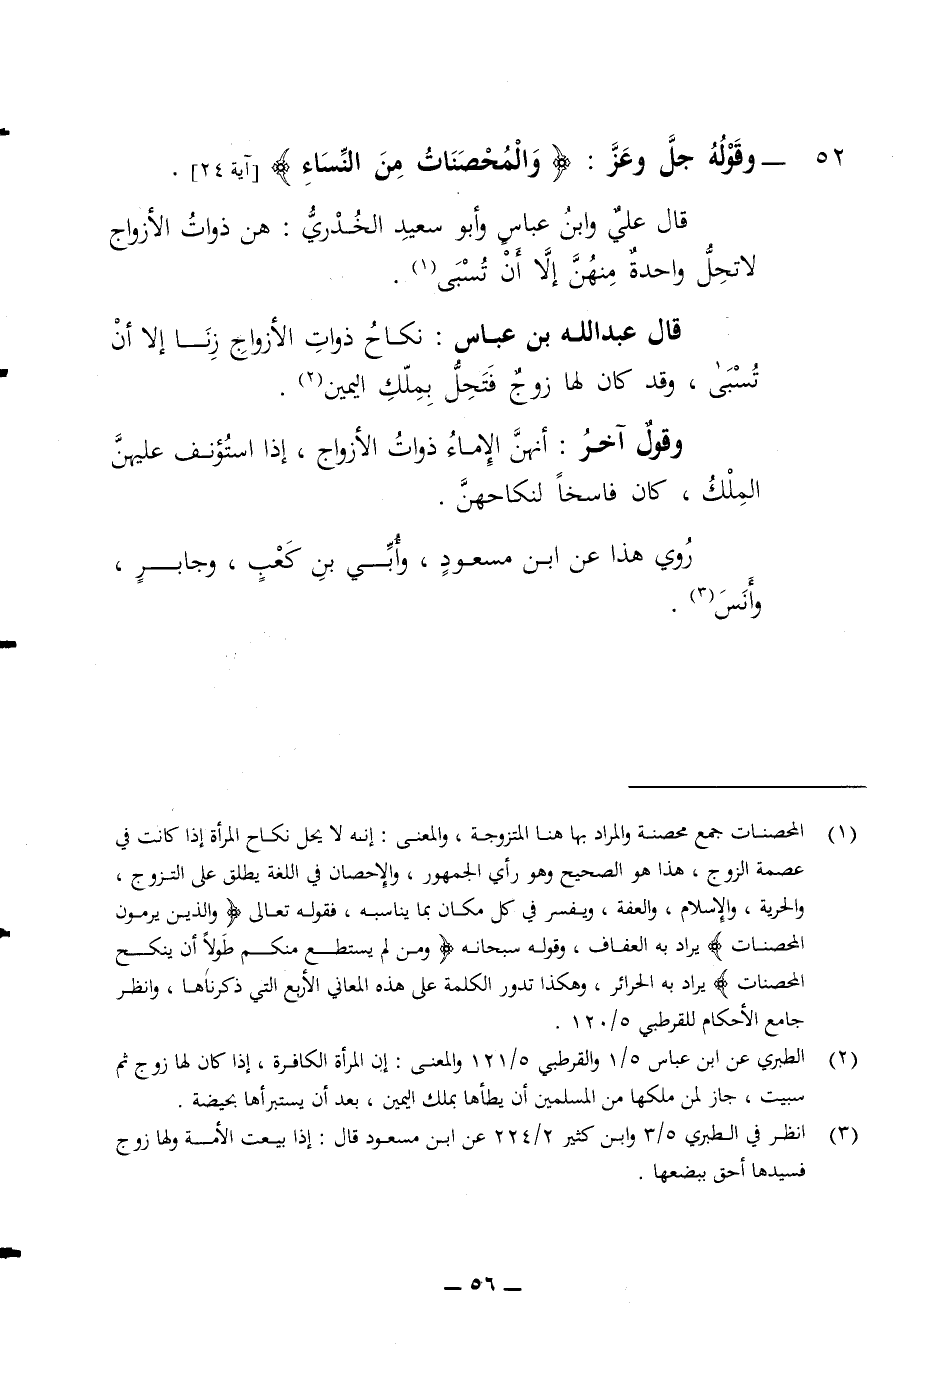 ٥٢ ــ وقَوْلُهُ جلَّ وعَزَّ : ﴿ وَالْمُحْصَنَاتُ مِنَ النِّسَاءِ ﴾ [آية ٢٤] .
قال عليٌ وابنُ عباسٍ وأبو سعيدِ الخُدْريُّ : هن ذواتُ الأزواج
لاتحلُّ واحدةٌ مِنهُنَّ إلَّا أَنْ تُسْبَى(١) .
قال عبدالله بن عباس : نكاحُ ذواتِ الأزواجِ زِنَا إلا أنْ
تُسْبَىٰ ، وقد كان لها زوجٌ فَتَحِلُّ بِمِلّكِ اليمين(٢) .
وقولٌ آخرُ : أنهنَّ الإماءُ ذواتُ الأزواج ، إذا استُؤنف عليهنَّ
المِلْكُ ، كان فاسخاً لنكاحهنَّ .
رُوي هذا عن ابن مسعودٍ ، وأُبَّي بنِ كَعْبٍ ، وجابرٍ ،
وأَنَسَ(٣) .
(١) المحصنات جمع محصنة والمراد بها هنا المتزوجة ، والمعنى : إنه لا يحل نكاح المرأة إذا كانت في
عصمة الزوج ، هذا هو الصحيح وهو رأي الجمهور ، والإحصان في اللغة يطلق على التزوج ،
والحرية ، والإسلام ، والعفة ، ويفسر في كل مكان بما يناسبه ، فقوله تعالى ﴿ والذين يرمون
المحصنات ﴾ يراد به العفاف ، وقوله سبحانه ﴿ ومن لم يستطع منكم طَولاً أن ينكح
المحصنات ﴾ يراد به الحرائر ، وهكذا تدور الكلمة على هذه المعاني الأربع التي ذكرناها ، وانظر
جامع الأحكام للقرطبي ١٢٠/٥ .
(٢) الطبري عن ابن عباس ١/٥ والقرطبي ١٢١/٥ والمعنى : إن المرأة الكافرة ، إذا كان لها زوج ثم
سبيت ، جاز لمن ملكها من المسلمين أن يطأها بملك اليمين ، بعد أن يستبرأها بحيضة .
(٣) انظر في الطبري ٣/٥ وابن كثير ٢٢٤/٢ عن ابن مسعود قال : إذا بيعت الأمة ولها زوج
فسيدها أحق ببضعها .
ــ ٥٦ ــ